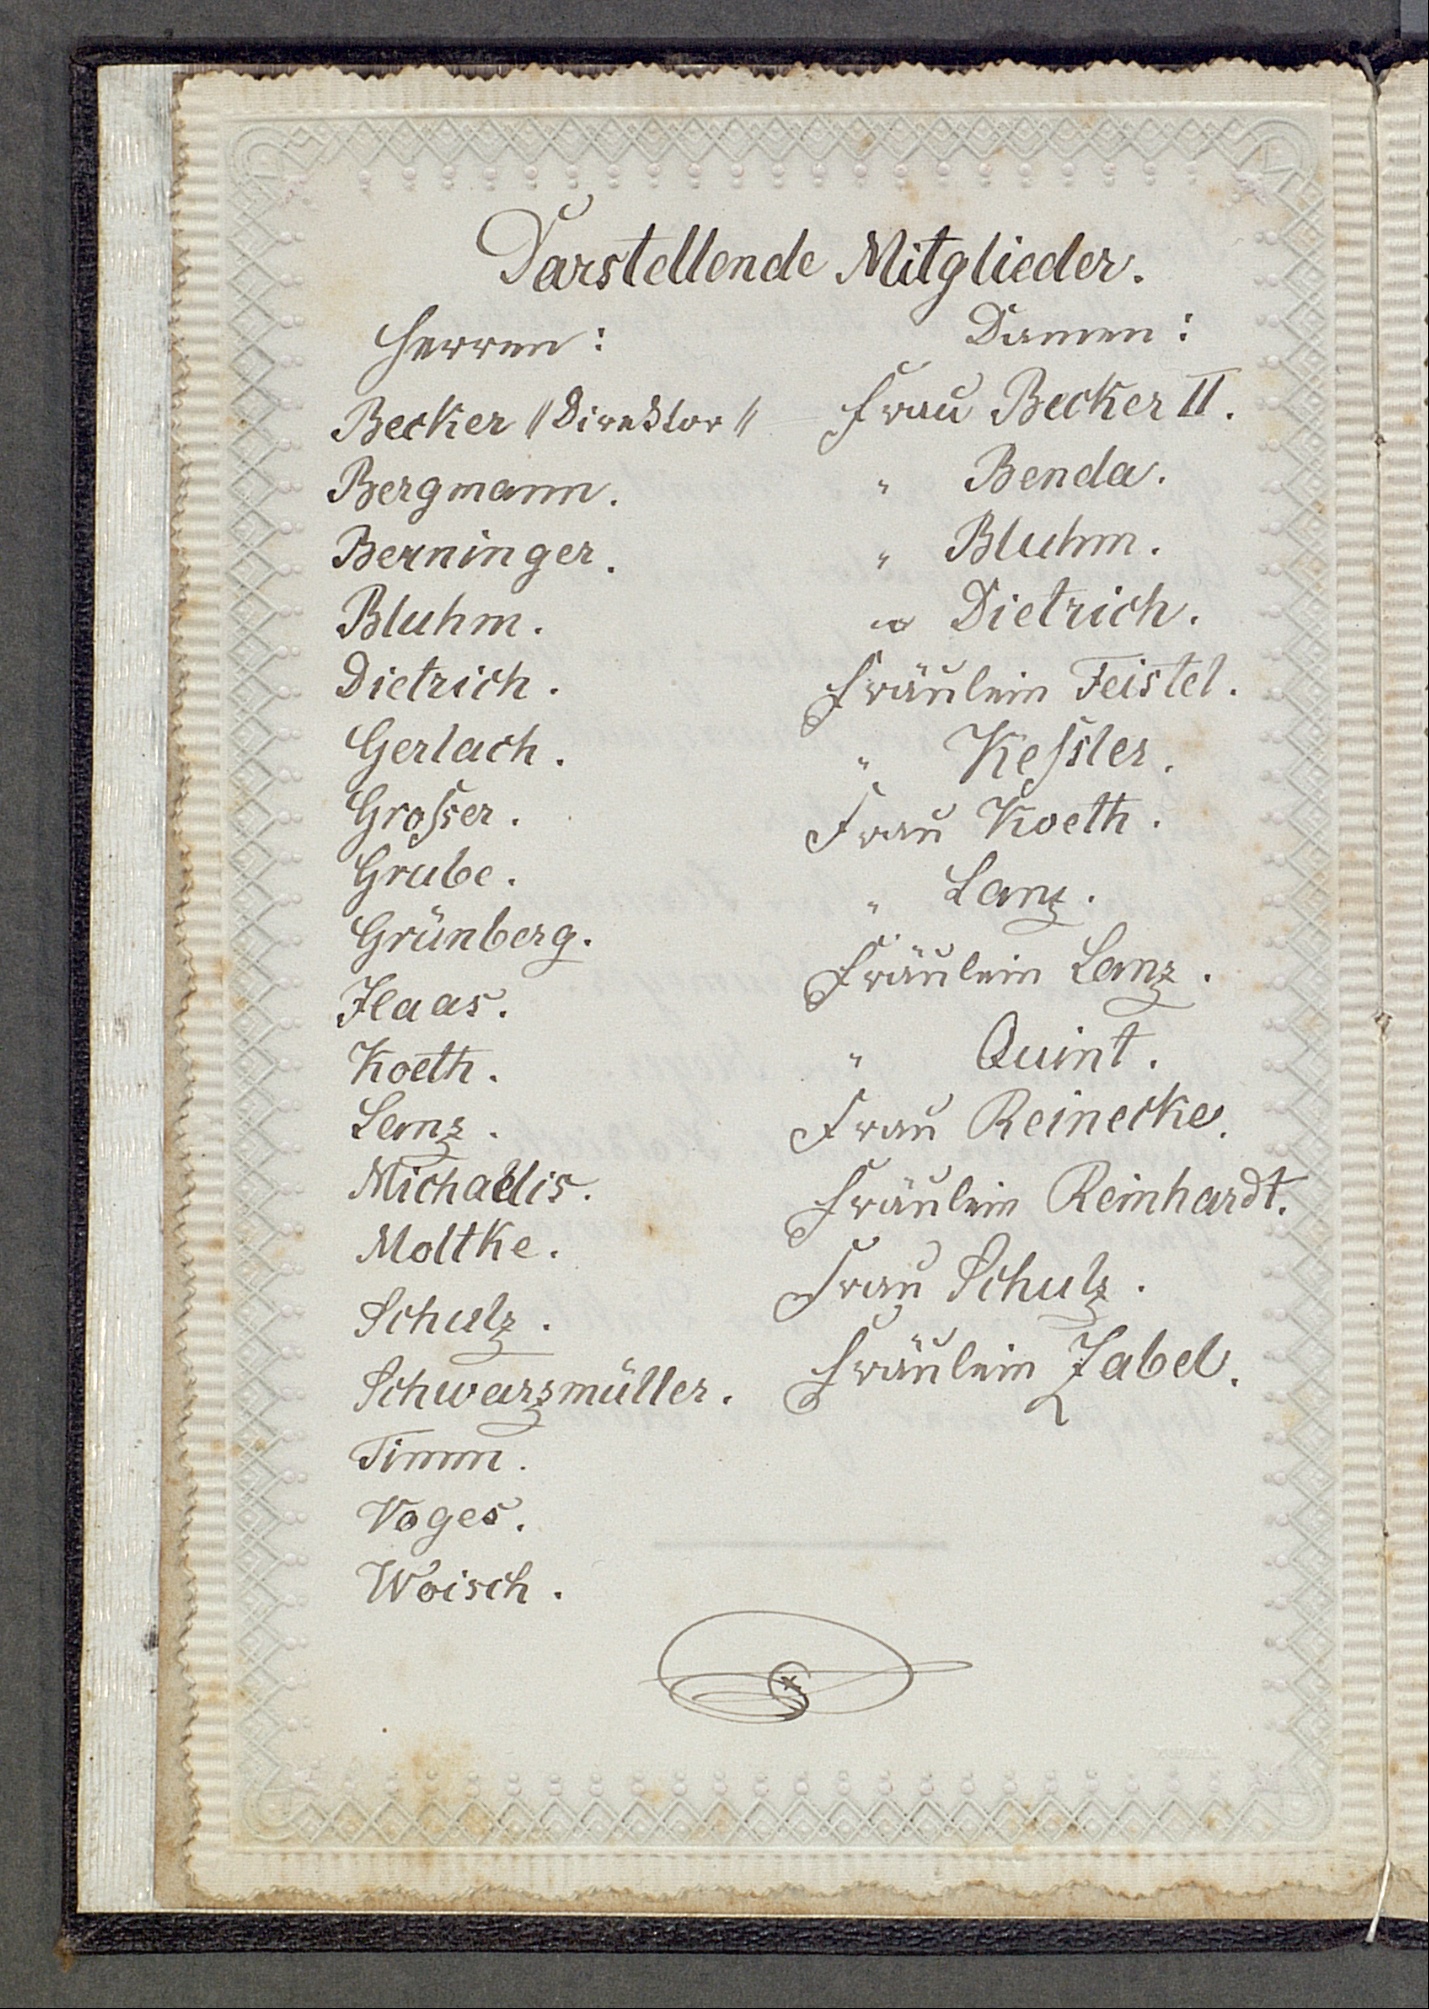 Darstellende Mitglieder.
Herren:
Becker //Direktor//
Bergmann.
Berninger.
Bluhm.
Dietrich.
Gerlach.
Groſser.
Grube.
Grünberg.
Haas.
Koeth.
Lanz.
Michaelis.
Moltke.
Schulz.
Schwarzmüller.
Timm.
Voges.
Woisch.
Damen:
Frau Becker II.
" Benda.
" Bluhm.
" Dietrich.
Fräulein Feistel.
" Keſsler.
Frau Koeth.
" Lanz.
Fräulein Lanz.
" Quint.
Frau Reinecke.
Fräulein Reinhardt.
Frau Schulz.
Fräulein Zabel.